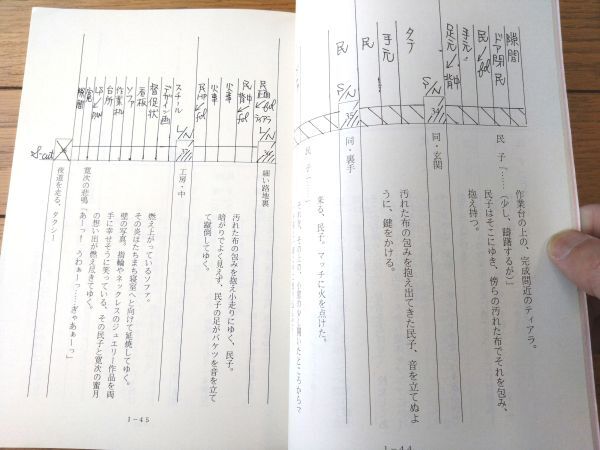 作業台の上の、完成間近のティアラ。
民 子「……(少し、躊躇するが)」
民子はそこにゆき、傍らの汚れた布でそれを包み、
抱え持つ。
同・玄関
汚れた布の包みを抱え出てきた民子、音を立てぬよ
うに、鍵をかける。
同・裏手
来る、民子。マッチに火を点けた。
民 子「
隙間
ドア閉 民
民
手元
足元
背中
S/N
タテ
手元
民
民
S/N
1-44
細い路地裏
汚れた布の包みを抱え小走りにゆく、民子。
暗がりでよく見えず、民子の足がバケツを音を立て
て蹴倒してゆく。
工房・中
燃え上がっているソファ。
その炎はたちまち寝室へと向けて延焼してゆく。
壁の写真。指輪やネックレスのジュエリー作品を両
手に幸せそうに笑っている、その民子と寛次の蜜月
の想い出が燃え尽きてゆく。
寛次の悲鳴「あーっ！ うわぁーっ……ぎゃあぁーっ」
夜道を走る、タクシー
L/N
民
背中
火事
火事
スチール
L/N
督促状
看板
ソファ
作業
台所
寛
隙間
S-cut
1-45